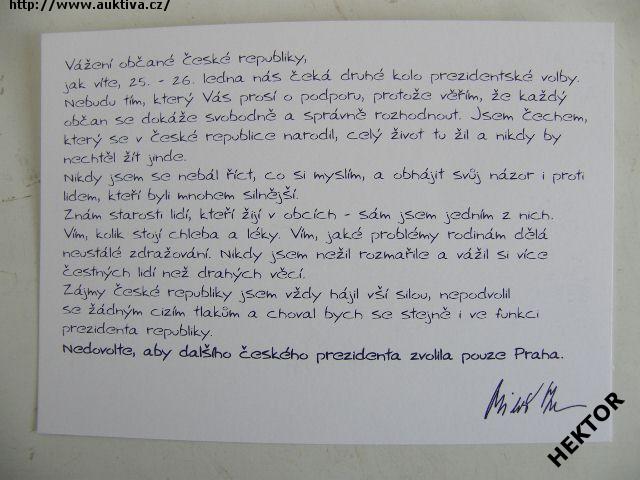 http://www.auktiva.cz/
Vážení občané České republiky,
jak víte, 25. - 26. ledna nás čeká druhé kolo prezidentské volby.
Nebudu tím, který Vás prosí o podporu, protože věřím, že každý
občan se dokáže svobodně a správně rozhodnout. Jsem Čechem,
který se v České republice narodil, celý život tu žil a nikdy by
nechtěl žít jinde.
Nikdy jsem se nebál říct, co si myslím, a obhájit svůj názor i proti
lidem, kteří byli mnohem silnější.
Znám starosti lidí, kteří žijí v obcích - sám jsem jedním z nich.
Vím, kolik stojí chleba a léky. Vím, jaké problémy rodinám dělá
neustálé zdražování. Nikdy jsem nežil rozmařile a vážil si více
čestných lidí než drahých věcí.
Zájmy České republiky jsem vždy hájil vší silou, nepodvolil
se žádným cizím tlakům a choval bych se stejně i ve funkci
prezidenta republiky.
Nedovolte, aby dalšího českého prezidenta zvolila pouze Praha.
HEKTOR